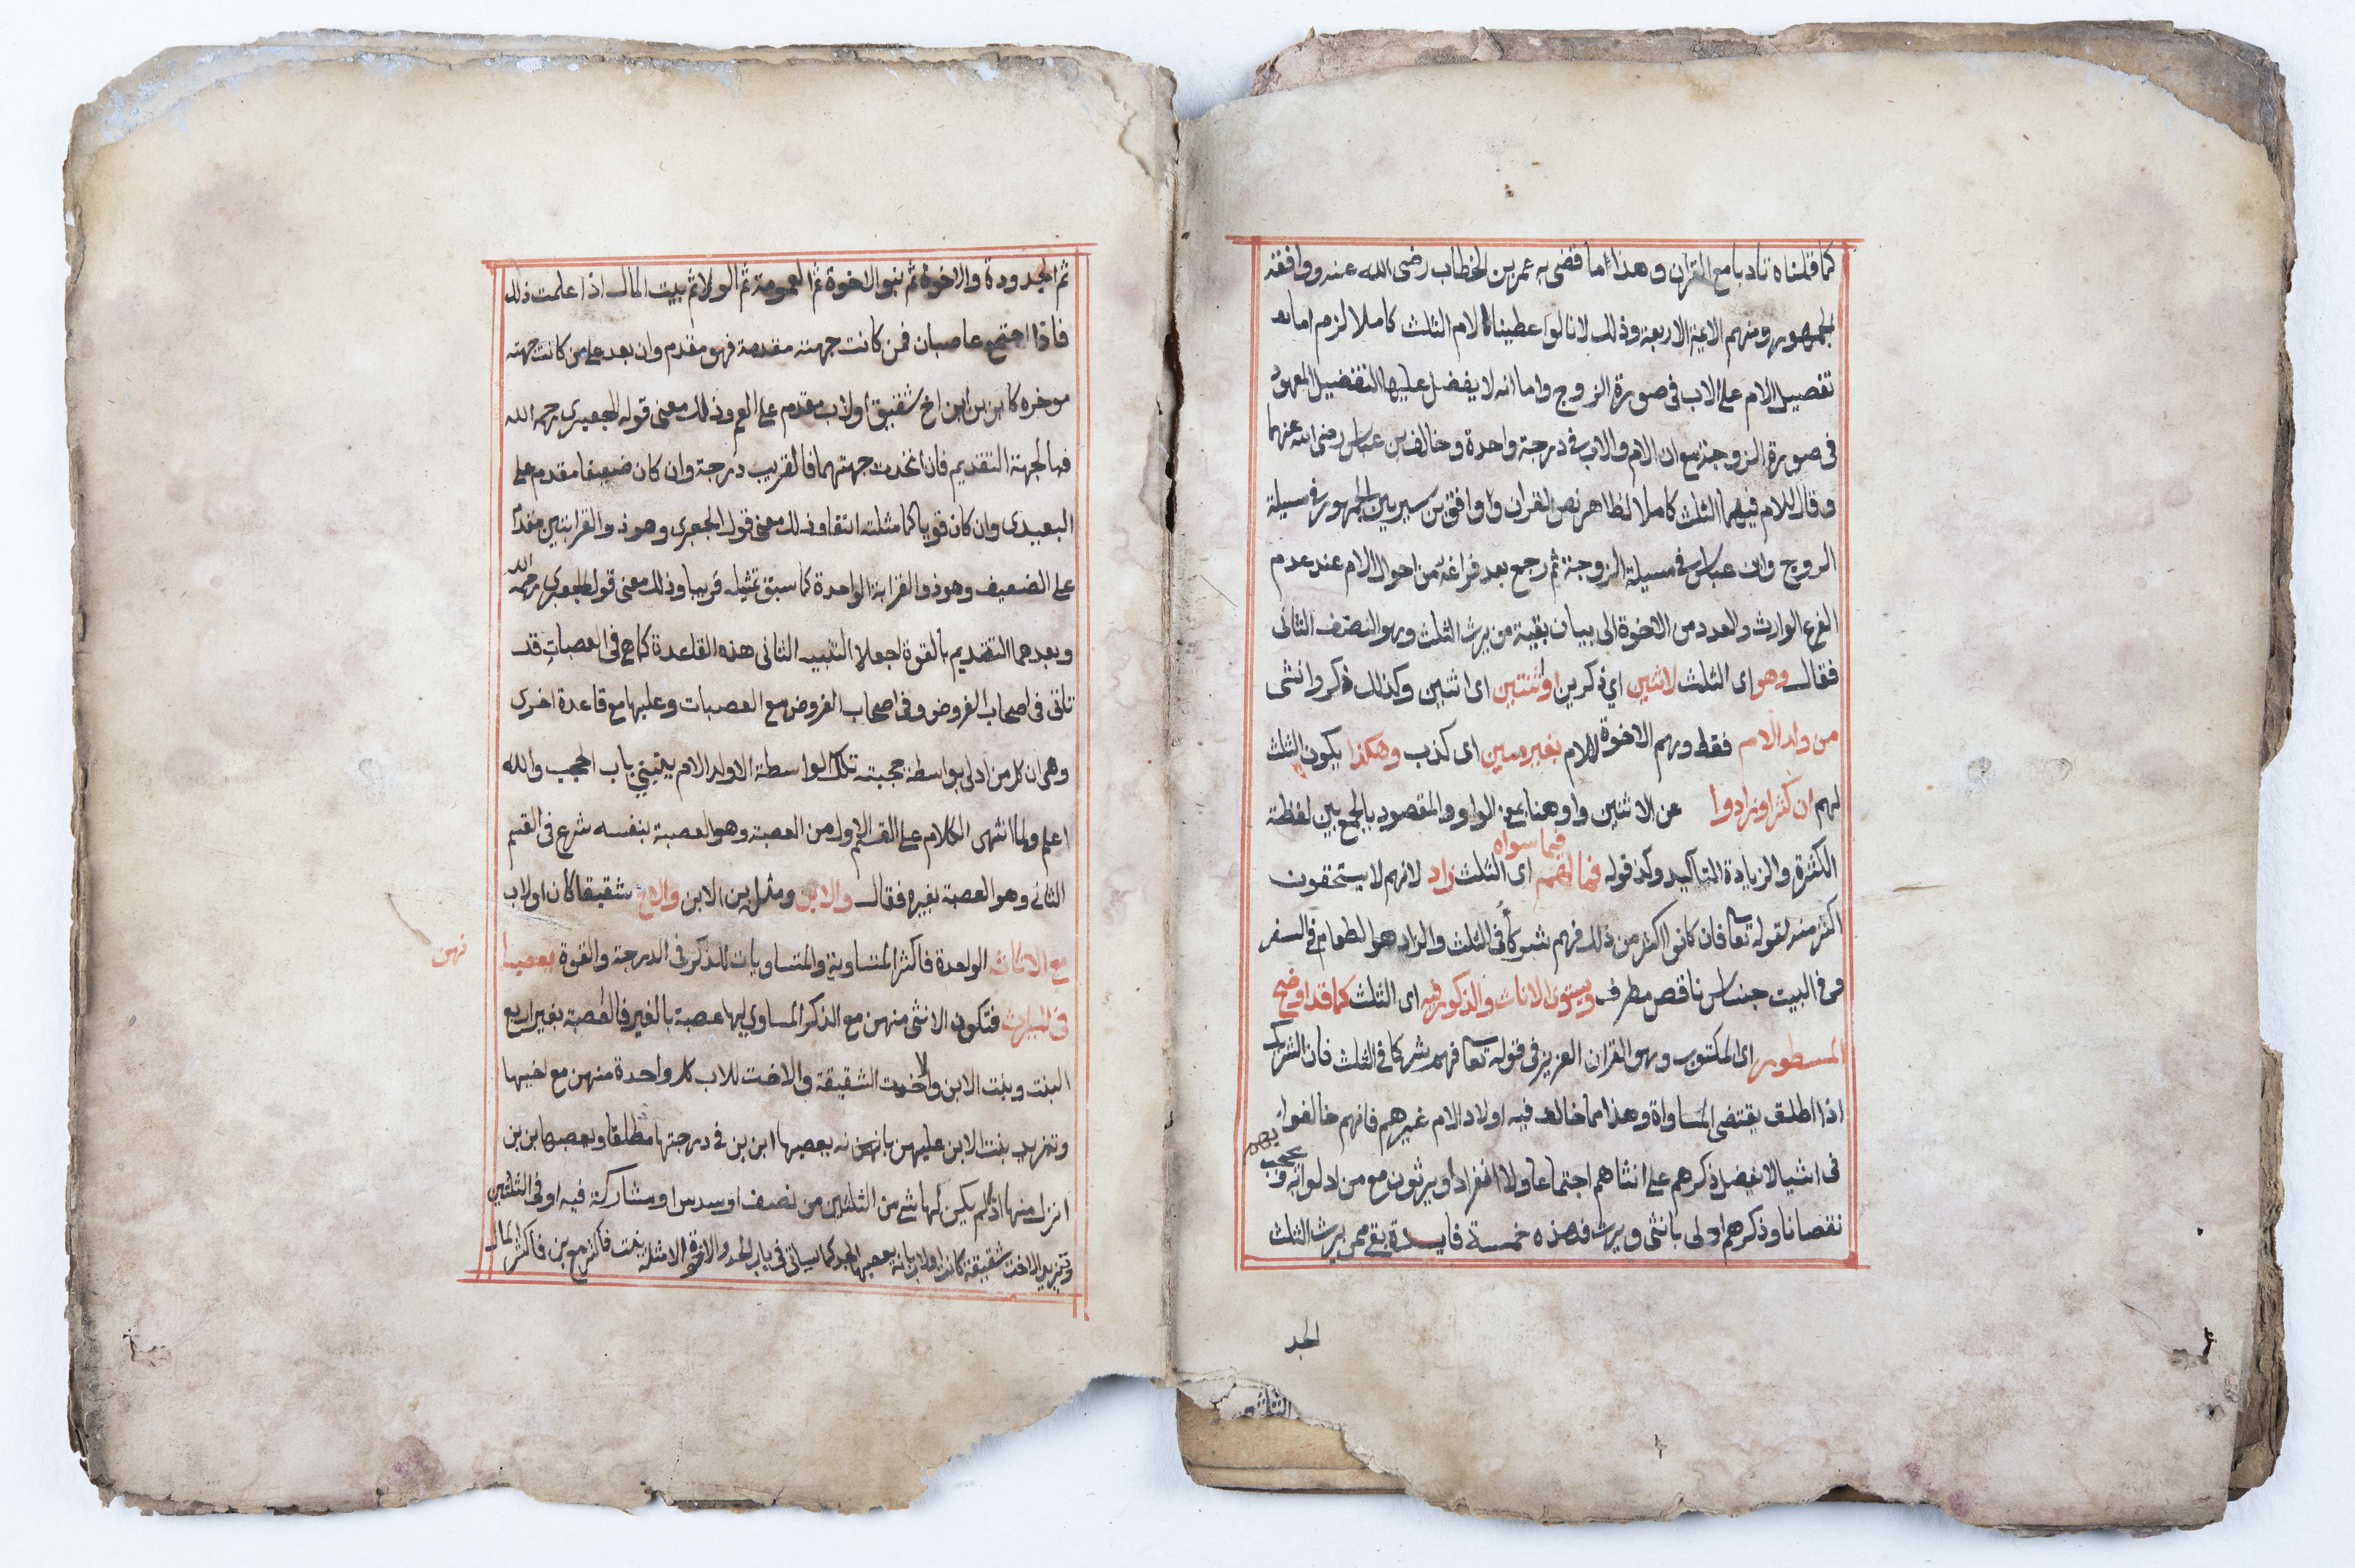 كما قلناه تادبا مع القران وهذا ما قضى به عمر بن الخطاب رضى الله عنه ووافقه
الجمهور ومنهم الايمة الاربعة وذلك لانا لو اعطينا الام الثلث كاملا لزم اما
تفضيل الام على الاب فى صورة الزوج واما انه لا يفضل عليها التفضيل المعهود
فى صورة الزوجة مع ان الام والاب فى درجة واحدة وخالف بن عباس رضى الله عنهما
وقال للام فيهما الثلث كاملا لظاهر نص القران ووافق بن سيرين الجمهور فى مسيلة
الزوج وابن عباس فى مسيلة الزوجة ثم رجع بعد فراغه من احوال الام عند عدم
الفرع الوارث والعدد من الاخوة الى بيان بقية من يرث الثلث وهو الصنف الثانى
فقال وهو اى الثلث لاثنين اي ذكرين او ثنتين اى اثنين وكذلك ذكر وانثى
من ولد الام فقط وهم الاخوة للام بغير مين اى كذب وهكذا يكون الثلث
لهم ان كثروا وزادوا عن الاثنين واو هنا بمعنى الواو والمقصود بالجمع بين لفظة
الكثرة والزيادة التاكيد وكذ قوله فما لهم فيما سواه اى الثلث زاد لانهم لا يستحقون
اكثر منه لقوله تعا فان كانوا اكثر من ذلك فهم شركأ فى الثلث والزاد هو الطعام فى السفر
وفى البيت جناس ناقص مطرف ويستوى الاناث والذكور فيه اى الثلث كما قد اوضح
المسطور اى المكتوب وهو القران العزيز فى قوله تعا فهم شركا فى الثلث فان التشريك
اذا اطلق يقتضى المساواة وهذا مما خالف فيه اولاد الام غيرهم فانهم خالفوا
فى اشيا لا يفضل ذكرهم على انثاهم اجتماعا ولا انفرادا ويرثون مع من ادلوا به
نقصانا وذكرهم ادلى بانثى ويرث فهذه خمسة فايدة بقى ممن يرث الثلث
الجد
ثم الجدودة والاخوة ثم بنو الاخوة ثم العمومة ثم الولا ثم بيت المال اذا علمت ذلك
فاذا اجتمع عاصبان فمن كانت جهته مقدمة فهو مقدم وان بعد على من كانت جهته
موخره كابن بن ابن اخ شقيق او لاب مقدم على العم وذلك معنى قوله الجعبرى رحمه الله
فبالجهة التقديم فان اتحدت جهتهما فالقريب درجة وان كان ضعيفا مقدم على
البعيدى وان كان قويا كما مثلته انفا وذلك معنى قول الجعبرى وهو ذو القرابتين مقدم
على الضعيف وهو ذو القرابة الواحدة كما سبق تمثيله قريبا وذلك معنى قول الجعبرى رحمه الله
وبعدهما التقديم بالقوة اجعلا التنبيه الثانى هذه القاعدة كما هى فى العصبات قد
تاتى فى اصحاب الفروض وفى اصحاب الفروض مع العصبات وعليها مع قاعدة اخرى
وهى ان كل من ادلى بواسطة حجبته تلك الواسطة الا ولد الام يبتني باب الحجب والله
اعلم ولما انتهى الكلام على القسم الاول من العصبة وهو العصبة بنفسه شرع فى القسم
الثانى وهو العصبة بغيره فقال والابن ومثله بن الابن والاخ شقيقا كان او لاب
مع الاناث الواحدة فاكثر المتساوية والمتساويات للذكر فى الدرجة والقوة يعصبا
نهن
فى الميراث فتكون الانثى منهن مع الذكر المساوي لها عصبة بالغير فالعصبة بغير اربع
البنت وبنت الابن والاخت الشقيقة والاخت للاب كل واحدة منهن مع اخيها
وتزيد بنت الابن عليهن بانه يعصبها ابن بن فى درجتها مطلقا ويعصبها بن بن
انزل منها اذا لم يكن لها شى من الثلثين من نصف او سدس او مشاركة فيه او فى الثلثين
وتزيد الاخت شقيقة كانت او لاب بانه يعصبها الجد كما سياتى فى باب الجد والاخوة الامثلة بنت فاكثر مع بن فاكثر المال